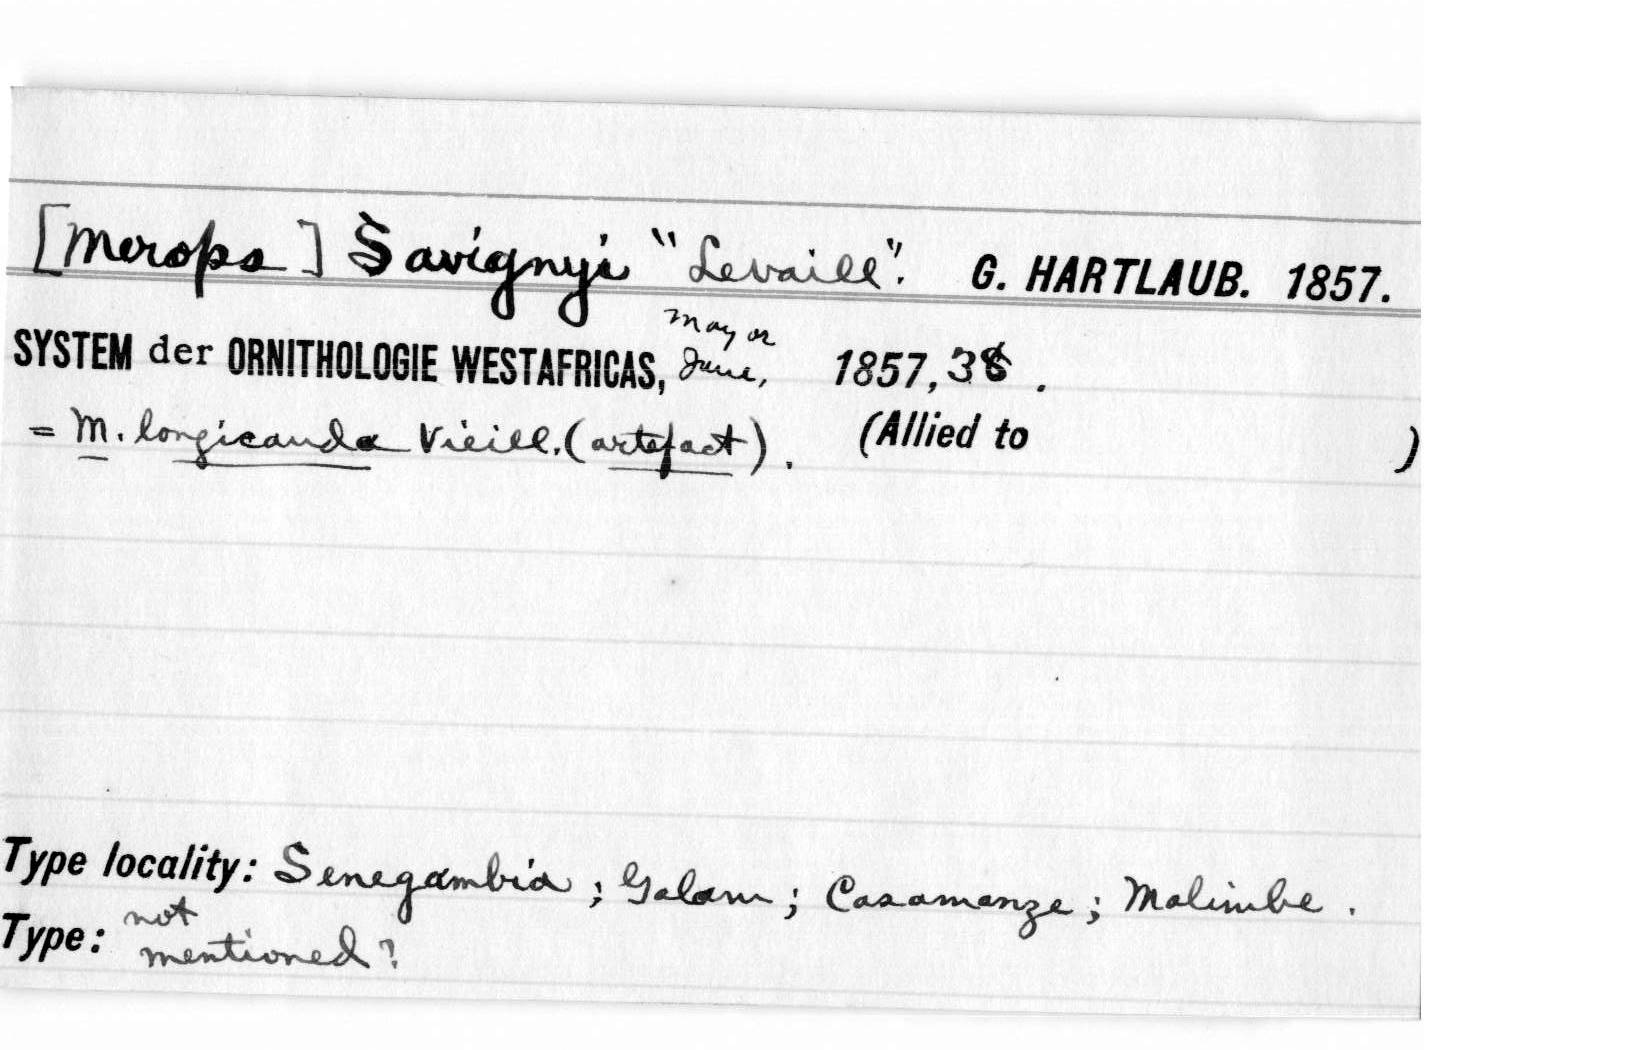 [Merops] Savignyi "Levaill". G. HARTLAUB. 1857.
SYSTEM der ORNITHOLOGIE WESTAFRICAS, May or June, 1857, 38.
= M. longicauda Vieill. (artefact). (Allied to )
Type locality: Senegambia; Galam; Casamanze; Malimbe.
Type: not mentioned?